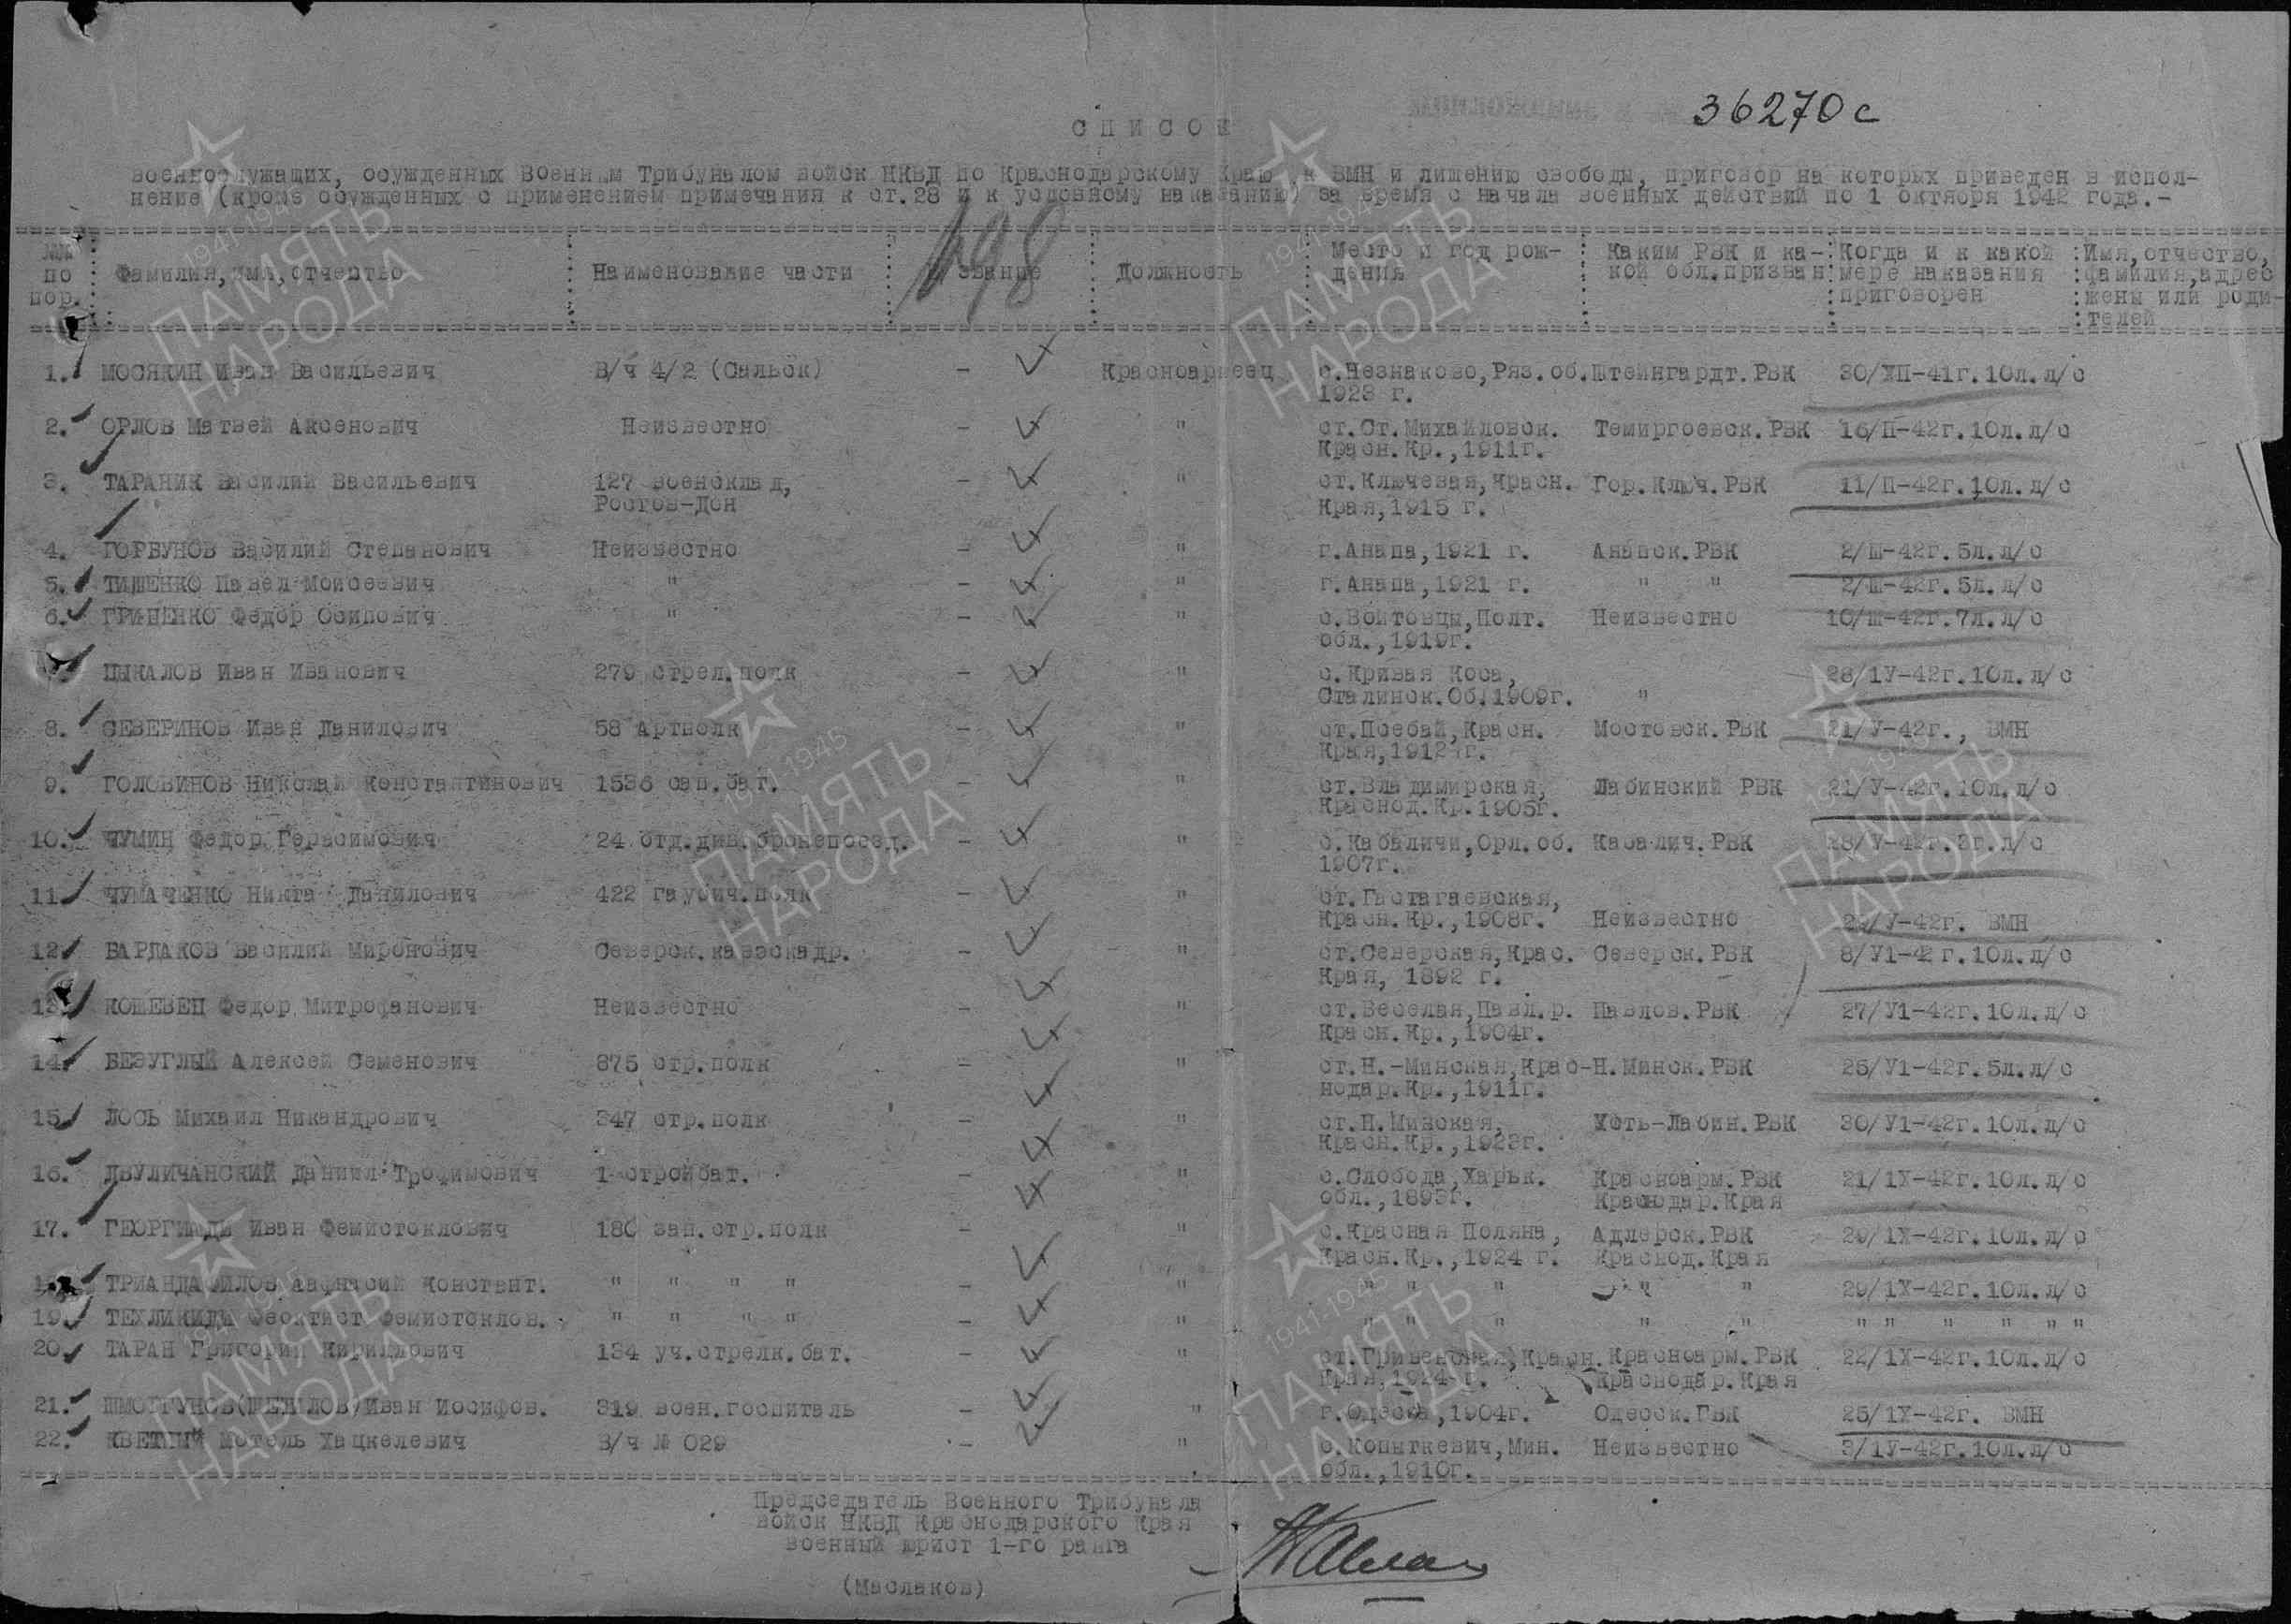 36270с
СПИСОК
военнослужащих, осужденных Военным Трибуналом войск НКВД по Краснодарскому Краю к ВМН и лишению свободы, приговор на которых приведен в испол-
нение (кроме осужденных с применением примечания к ст.28 и к условному наказанию) за время с начала военных действий по 1 октября 1942 года.-
498
№№ по пор. : Фамилия, имя, отчество : Наименование части : Звание : Должность : Место и год рож-дения : Каким РВК и ка-кой обл.призван : Когда и к какой мере наказания приговорен : Имя, отчество, фамилия, адрес жены или роди-телей
1. МОСЯКИН Иван Васильевич В/ч 4/2 (Сальск) - Красноармеец с.Незнаково, Ряз.об. Штейнгардт.РВК 30/ХП-41г.10л.л/с
1923 г.
2. ОРЛОВ Матвей Аксенович Неизвестно - " ст.Ст.Михайловск. Темиргоевск.РВК 16/П-42г.10л.л/с
Красн.Кр.,1911г.
3. ТАРАНИК Василий Васильевич 127 военсклад, - " ст.Ключевая, Красн. Гор.Ключ.РВК 11/П-42г.10л.л/с
Ростов-Дон Края,1915 г.
4. ГОРБУНОВ Василий Степанович Неизвестно - " г.Анапа,1921 г. Анапск.РВК 2/Ш-42г.5л.л/с
5. ТИШЕНКО Павел Моисеевич " - " г.Анапа,1921 г. " " 2/Ш-42г.5л.л/с
6. ГРИЦЕНКО Федор Осипович " - " с.Войтовцы, Полт. Неизвестно 10/Ш-42г.7л.л/с
обл.,1919г.
ЦЫКАЛОВ Иван Иванович 279 стрел.полк - " с.Кривая Коса, 28/1У-42г.10л.л/с
Сталинск.Об.1909г. "
8. СЕВЕРИНОВ Иван Данилович 58 Артполк - " ст.Псебай, Красн. Мостовск.РВК 21/У-42г., ВМН
Края,1912 г.
9. ГОЛОВИНОВ Николай Константинович 1536 сап.бат. - " ст.Владимирская, Лабинский РВК 21/У-42г.10л.л/с
Краснод.Кр.1905г.
10. ЧУМИН Федор Герасимович 24 отд.див.бронепоезд. - " с.Кабаличи, Орл.об. Кабалич.РВК 28/У-42г.2г.л/с
1907г.
11. ЧУМАЧЕНКО Никта Данилович 422 гаубич.полк - " ст.Гастагаевская,
Красн.Кр.,1908г. Неизвестно 29/У-42г. ВМН
12. БАРДАКОВ Василий Миронович Северск.кавэскадр. - " ст.Северская, Крас. Северск.РВК 8/У1-42г.10л.л/с
Края, 1892 г.
13. КОШЕВЕЦ Федор Митрофанович Неизвестно - " ст.Веселая, Павл.р. Павлов.РВК 27/У1-42г.10л.л/с
Красн.Кр.,1904г.
14. БЕЗУГЛЫЙ Алексей Семенович 875 стр.полк - " ст.Н.-Минская, Крас- Н.Минск.РВК 25/У1-42г.5л.л/с
нодар.Кр.,1911г.
15. ЛОСЬ Михаил Никандрович 347 стр.полк - " ст.Н.Минская, Усть-Лабин.РВК 30/У1-42г.10л.л/с
Красн.Кр.,1923г.
16. ДВУЛИЧАНСКИЙ Даниил Трофимович 1 стройбат. - " с.Слобода, Харьк. Красноарм.РВК 21/1Х-42г.10л.л/с
обл.,1893г. Краснодар.Края
17. ГЕОРГИАДИ Иван Фемистоклович 180 зап.стр.полк - " с.Красная Поляна, Адлерск.РВК 29/1Х-42г.10л.л/с
Красн.Кр.,1924 г. Краснод.Края
ТРИАНДАФИЛОВ Афанасий Констант. " " " " - " " " " " " 29/1Х-42г.10л.л/с
19. ТЕХЛИКИДИ Феоктист Фемистоклов. " " " " - " " " " " " " " " " " "
20. ТАРАН Григорий Кириллович 134 уч.стрелк.бат. - " ст.Гривенская, Красн. Красноарм.РВК 22/1Х-42г.10л.л/с
Края,1924 г. Краснодар.Края
21. ШМОРГУНОВ(ШЕНШЛОВ) Иван Иосифов. 319 воен.госпиталь - " г.Одесса,1904г. Одесск.ГВК 25/1Х-42г. ВМН
22. КВЕТНЫЙ Мотель Хацкелевич В/ч № 029 - " с.Копыткевич, Мин. Неизвестно 3/1У-42г.10л.л/с
обл.,1910г.
Председатель Военного Трибунала
войск НКВД Краснодарского Края
военный юрист 1-го ранга
(Маслаков)
1941-1945
ПАМЯТЬ
НАРОДА
1941-1945
ПАМЯТЬ
НАРОДА
1941-1945
ПАМЯТЬ
НАРОДА
1941-1945
ПАМЯТЬ
НАРОДА
1941-1945
ПАМЯТЬ
НАРОДА
1941-1945
ПАМЯТЬ
НАРОДА